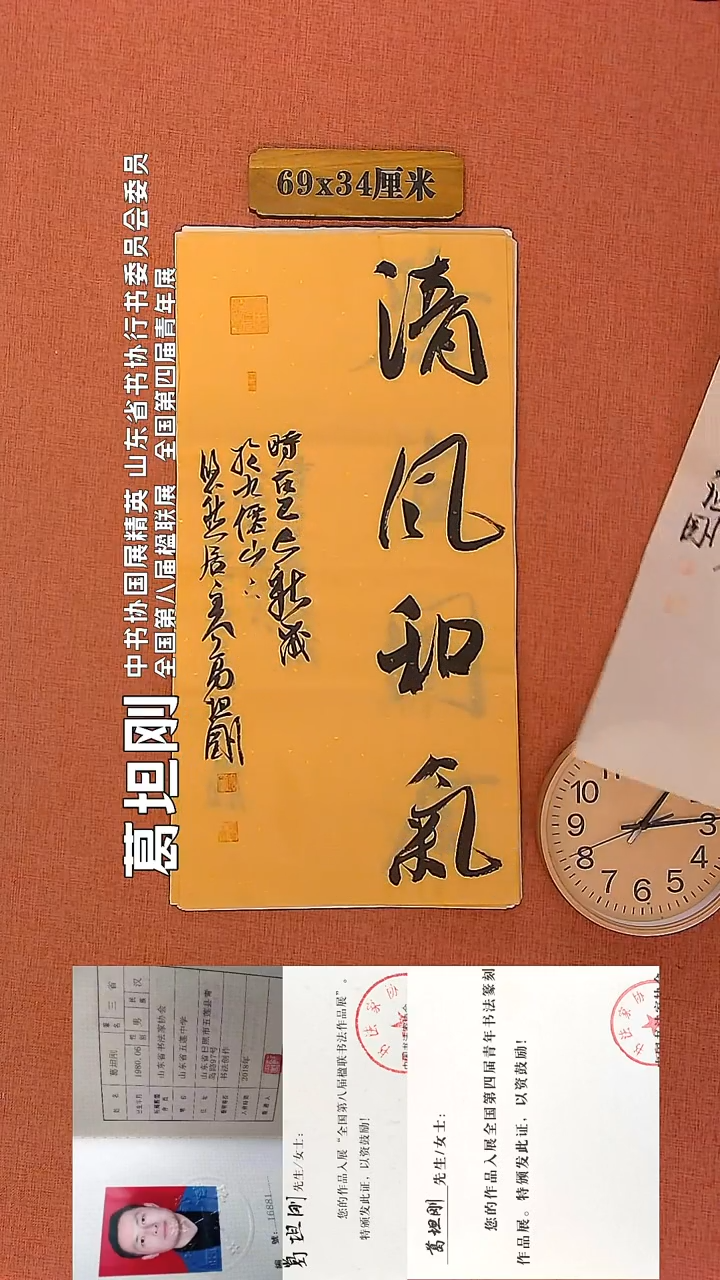 69x34厘米
清风和氣
時在乙巳秋歲
於九仙山下
悠然居主人葛坦剛
葛坦刚
中书协国展精英 山东省书协行书委员会委员
全国第八届楹联展 全国第四届青年展
10
9
8
7
6
5
4
3
葛坦刚
1980.06
男
汉
山东省书法家协会
山东省五莲中学
书法创作
2018年
號：16881
葛坦刚 先生/女士：
您的作品入展“全国第八届楹联书法作品展”。
特颁发此证，以资鼓励！
葛坦刚 先生/女士：
您的作品入展全国第四届青年书法篆刻
作品展。特颁发此证，以资鼓励！